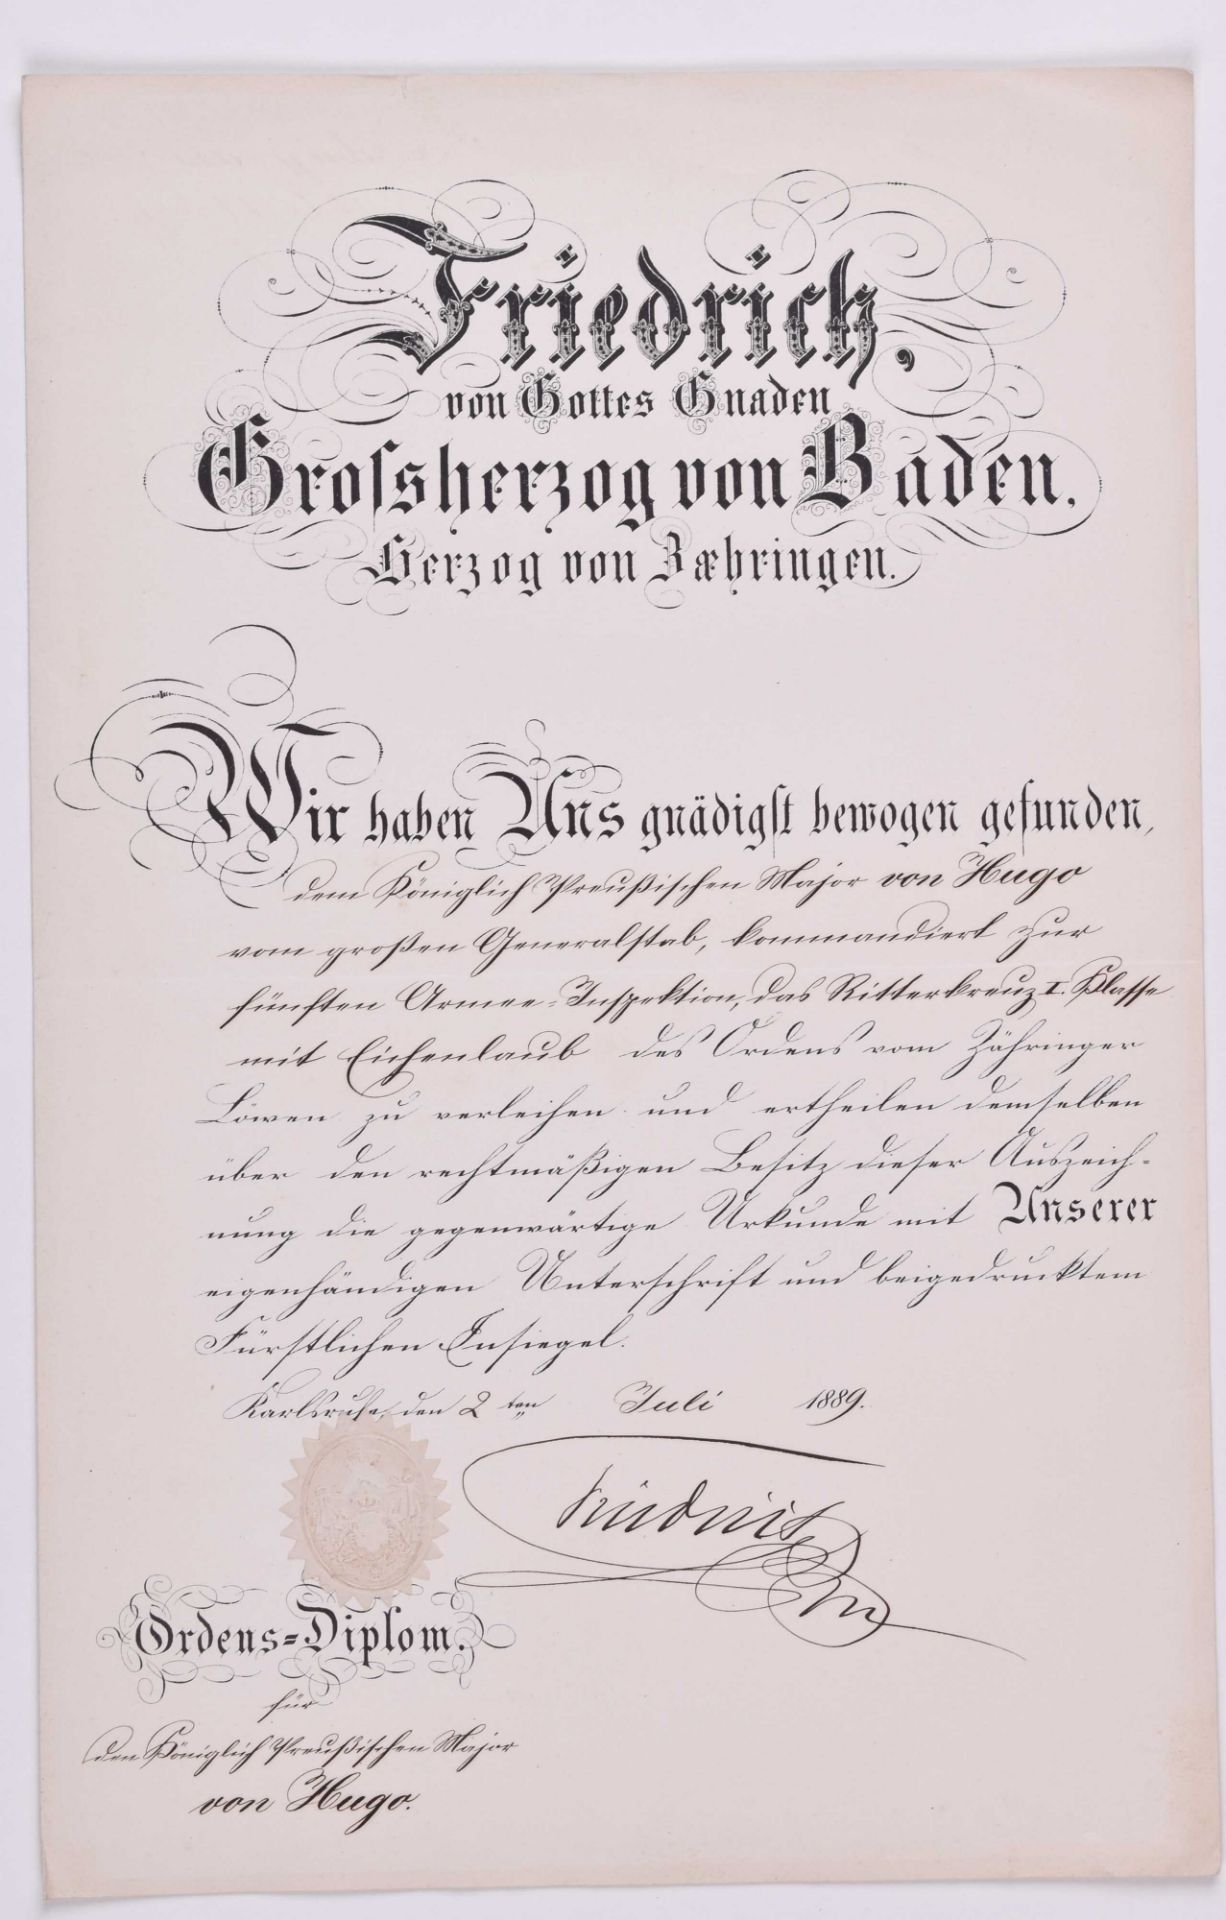 Friedrich,
von Gottes Gnaden
Grossherzog von Baden,
Herzog von Zæhringen.
Wir haben Uns gnädigst bewogen gefunden,
dem Königlich Preußischen Major von Hugo
vom großen Generalstab, kommandiert zur
fünften Armee-Inspektion, das Ritterkreuz I. Klasse
mit Eichenlaub des Ordens vom Zähringer
Löwen zu verleihen und ertheilen demselben
über den rechtmäßigen Besitz dieser Auszeich-
nung die gegenwärtige Urkunde mit Unserer
eigenhändigen Unterschrift und beigedrucktem
Fürstlichen Insiegel.
Karlsruhe, den 2ten Juli 1889.
Friedrich
Ordens-Diplom.
für
den Königlich Preußischen Major
von Hugo.